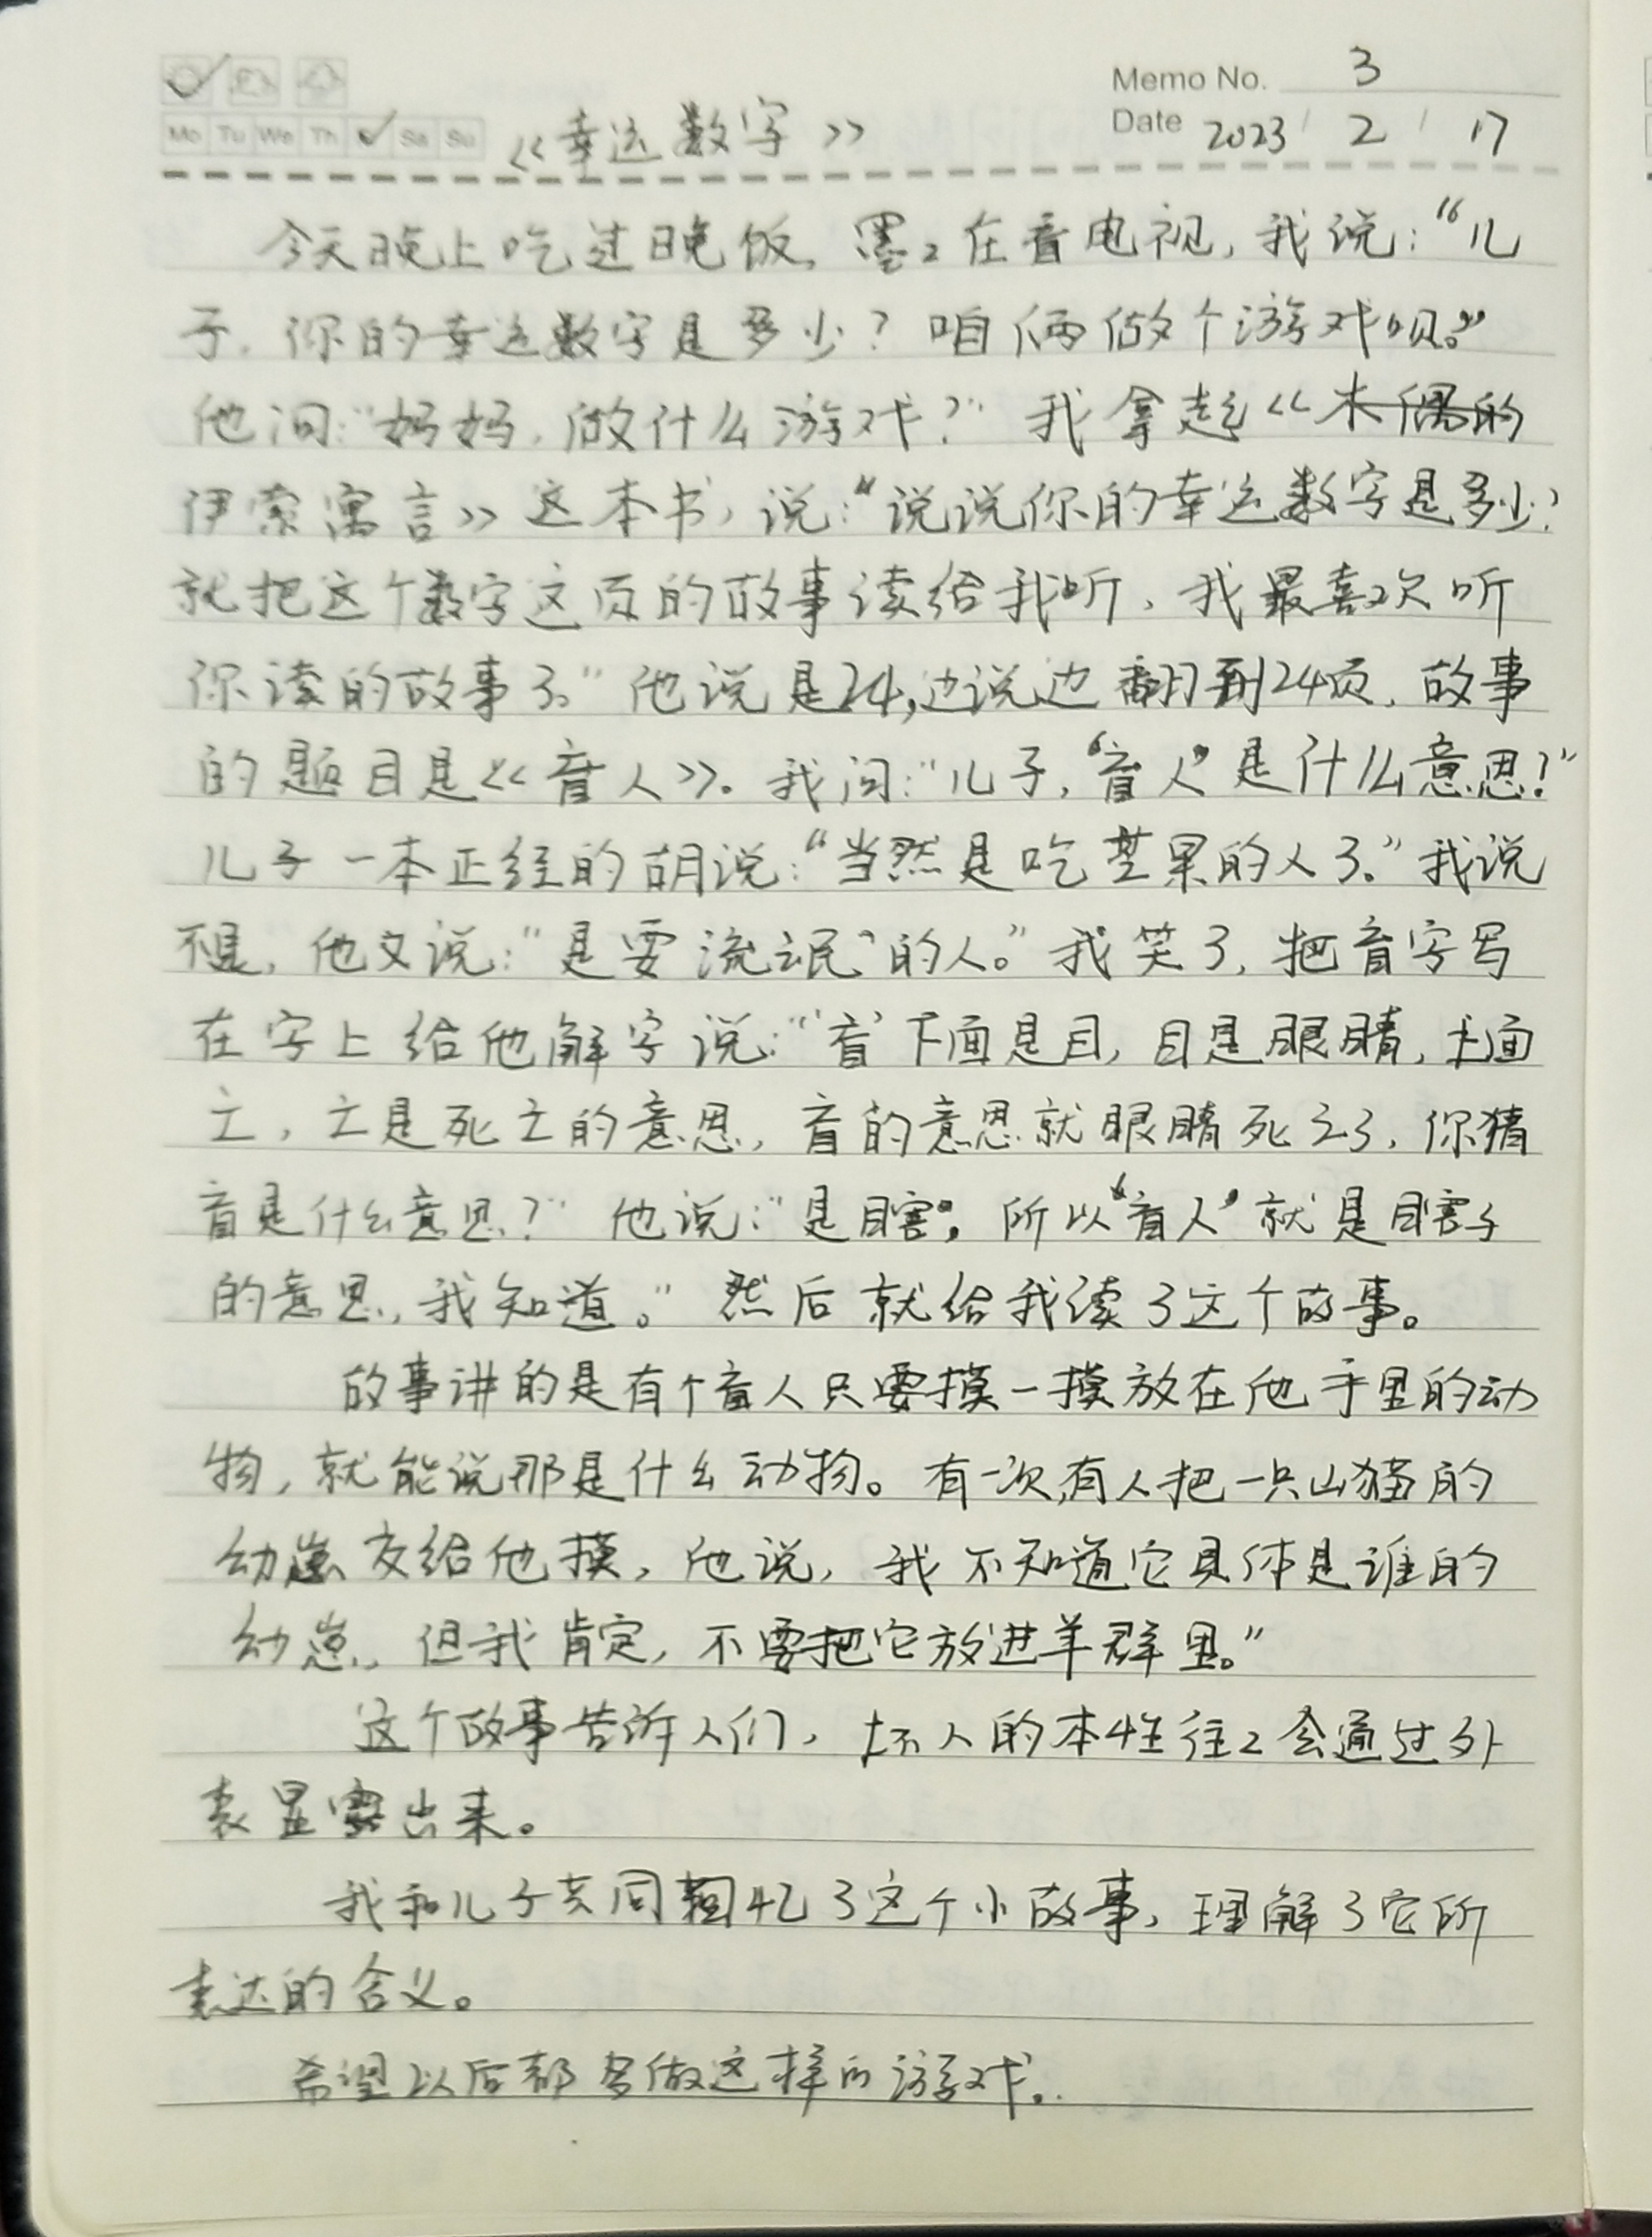 Memo No. 3
Mo Tu We Th Sa Su
《幸运数字》
Date 2023 / 2 / 17
今天晚上吃过晚饭,墨2在看电视,我说:“儿
子,你的幸运数字是多少?咱俩做个游戏呗。”
他问:“妈妈,做什么游戏?”我拿起《木偶的
伊索寓言》这本书,说:“说说你的幸运数字是多少?
就把这个数字这页的故事读给我听,我最喜欢听
你读的故事了。”他说是24,边说边翻到24页,故事
的题目是《盲人》。我问:“儿子,“盲人”是什么意思?”
儿子一本正经的胡说:“当然是吃芒果的人了。”我说
不是,他又说:“是要流氓的人。”我笑了,把盲字写
在字上给他解字说:“‘盲’下面是目,目是眼睛,上面
亡,亡是死亡的意思,盲的意思就眼睛死亡了,你猜
盲是什么意思?”他说:“是瞎,所以“盲人”就是瞎子
的意思,我知道。”然后就给我读了这个故事。
故事讲的是有个盲人只要摸一摸放在他手里的动
物,就能说那是什么动物。有一次,有人把一只山猫的
幼崽交给他摸,他说,我不知道它具体是谁的
幼崽,但我肯定,不要把它放进羊群里。”
这个故事告诉人们,坏人的本性往2会通过外
表显露出来。
我和儿子共同回忆了这个小故事,理解了它所
表达的含义。
希望以后都多做这样的游戏。